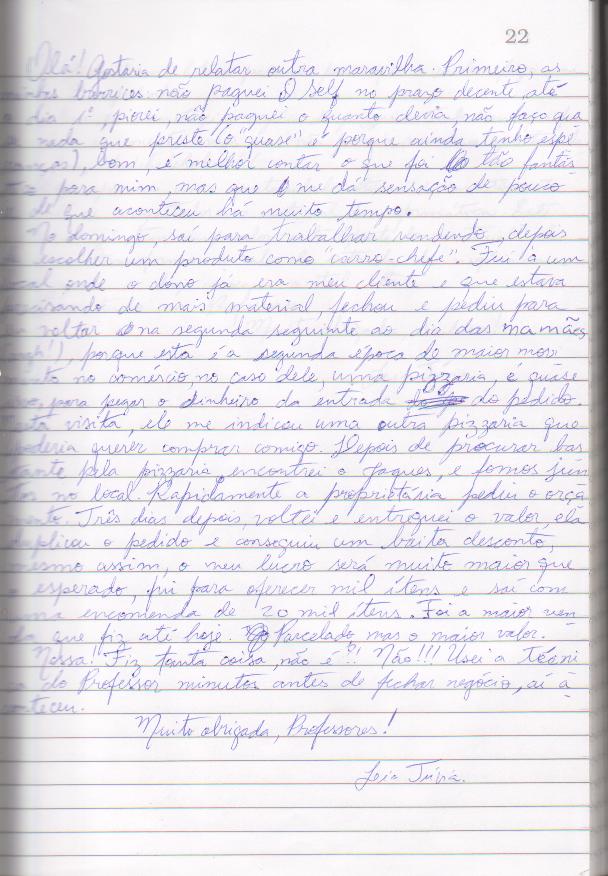 22
Olá! Gostaria de relatar outra maravilha. Primeiro, as
minhas não paguei O Self no prazo decente, até
o dia 1º, piorei, não paguei o quanto devia, não faço qua
se nada que preste (o "quase" é porque ainda tenho espe
ranças), bom, é melhor contar o que foi tão fantás
tico para mim, mas que me dá sensação de pouco
e de que aconteceu há muito tempo.
No domingo, saí para trabalhar vendendo, depois
de escolher um produto como "carro-chefe". Fui à um
local onde o dono já era meu cliente e que estava
precisando de mais material, fechou e pediu para
eu voltar na segunda seguinte ao dia das mamães
porque esta é a segunda época de maior movi
mento no comércio, no caso dele, uma pizzaria, é quase
para pegar o dinheiro da entrada do pedido.
Nesta visita, ele me indicou uma outra pizzaria que
poderia querer comprar comigo. Depois de procurar bas
tante pela pizzaria, encontrei o Jaques, e fomos jun
tos no local. Rapidamente a proprietária pediu o orça
mento. Três dias depois, voltei e entreguei o valor, ela
duplicou o pedido e conseguiu um baita desconto,
mesmo assim, o meu lucro será muito maior que
o esperado, fui para oferecer mil ítens e saí com
uma encomenda de 20 mil ítens. Foi a maior ven
da que fiz até hoje. Parcelado, mas o maior valor.
Nossa! Fiz tanta coisa, não é?! Não!!! Usei a técni
ca do Professor minutos antes de fechar negócio, aí a
conteceu.
Muito obrigada, Professores!